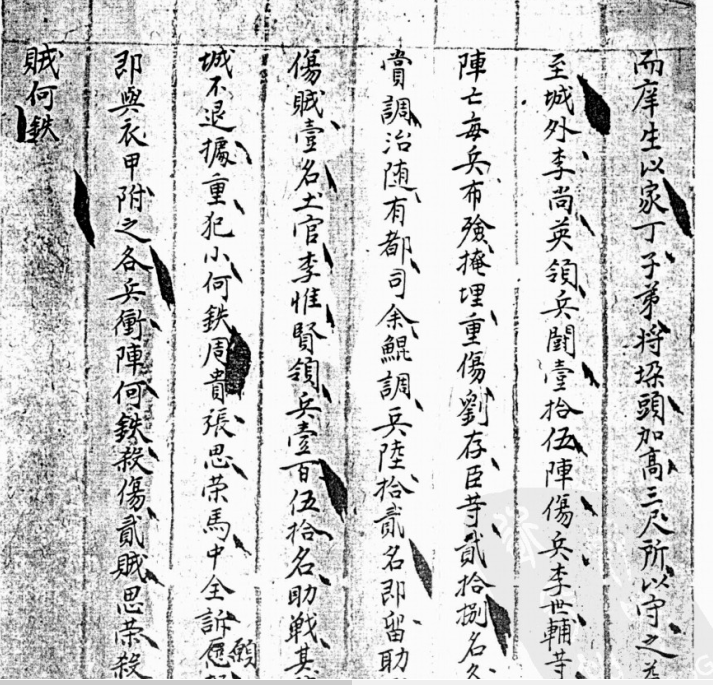 而庠生以家丁子弟将垛頭加高三尺所以守之
至城外李尚英領兵鬪壹拾伍陣傷兵李世輔䓁
陣亡每兵布殮掩埋重傷劉存臣䓁貳拾捌名
賞調治随有都司余鯤調兵陸拾貳名即留助
傷賊壹名土官李惟賢領兵壹百伍拾名助戦其
城不退據重犯小何鉄周貴張思荣馬中全訴
願
即與衣甲附之各兵衝陣何鉄殺傷貳賊思荣殺
賊何鉄